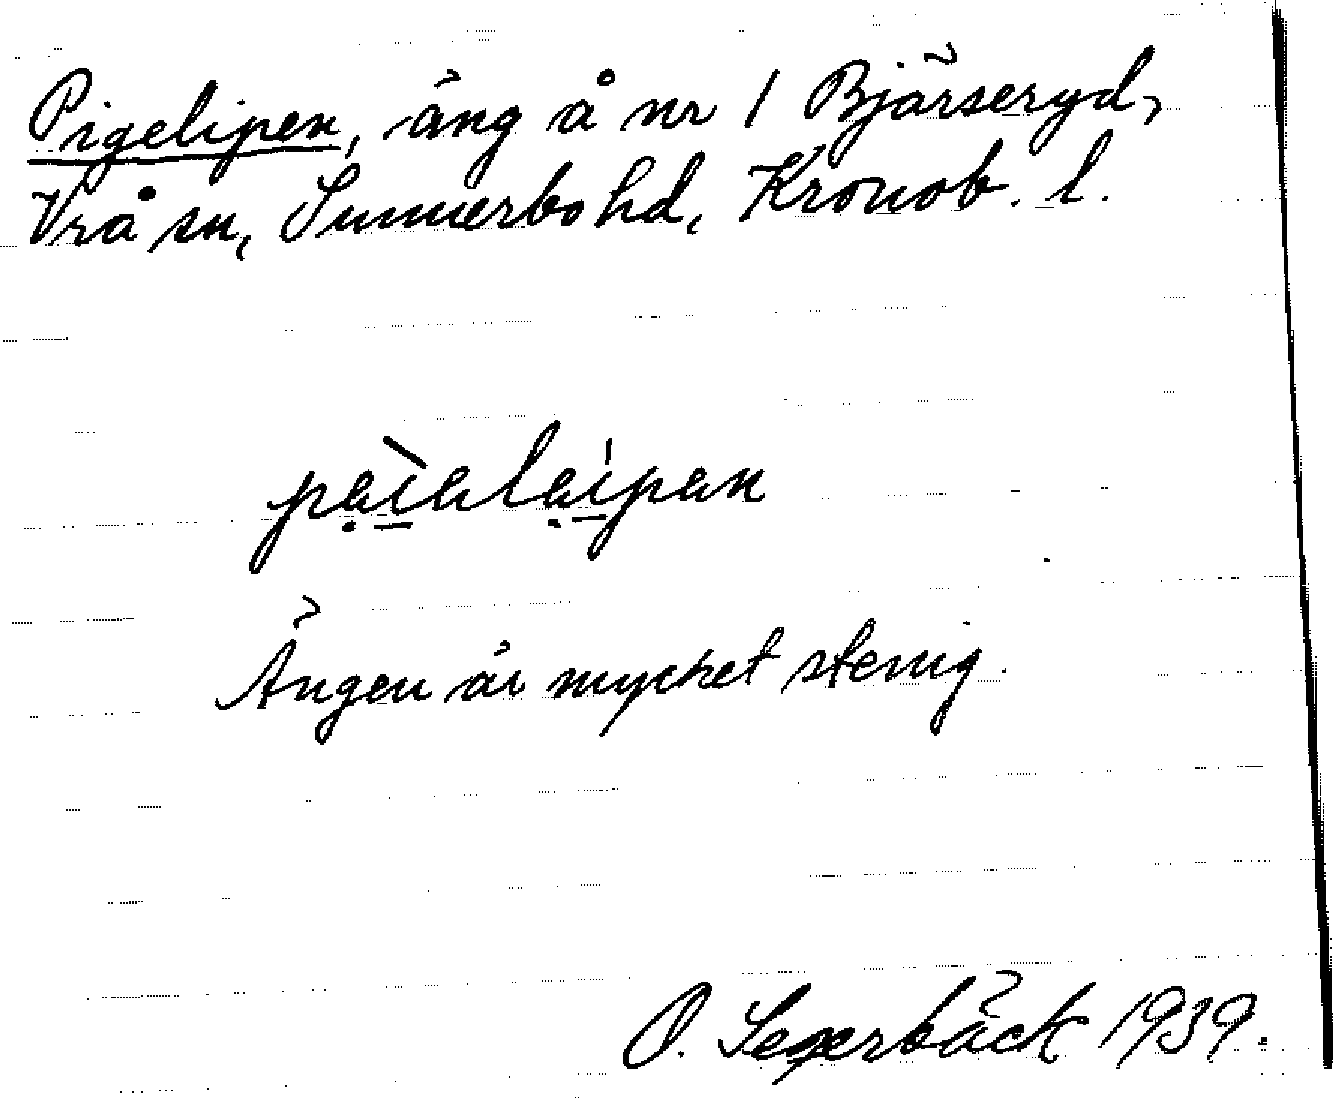 Pigelipen, äng å nr 1 Bjärseryd,
Vrå sn, Sunnerbo hd, Kronob. l.
Ängen är mycket stenig.
O. Segerbäck 1939.